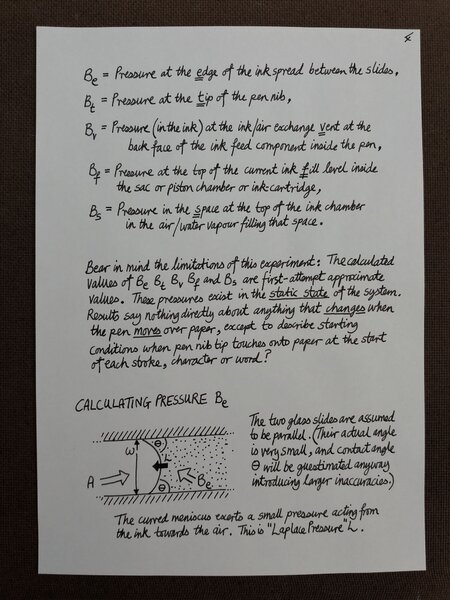 4
Be = Pressure at the edge of the ink spread between the slides,
Bt = Pressure at the tip of the pen nib,
Bv = Pressure (in the ink) at the ink/air exchange vent at the
back face of the ink feed component inside the pen,
Bf = Pressure at the top of the current ink fill level inside
the sac or piston chamber or ink-cartridge,
Bs = Pressure in the space at the top of the ink chamber
in the air/water vapour filling that space.
Bear in mind the limitations of this experiment: The calculated
values of Be Bt Bv Bf and Bs are first-attempt approximate
values. These pressures exist in the static state of the system.
Results say nothing directly about anything that changes when
the pen moves over paper, except to describe starting
conditions when pen nib tip touches onto paper at the start
of each stroke, character or word?
CALCULATING PRESSURE Be
The two glass slides are assumed
to be parallel. (Their actual angle
is very small, and contact angle
θ will be guestimated anyway
introducing larger inaccuracies.)
θ
ω
L
A
Be
θ
The curved meniscus exerts a small pressure acting from
the ink towards the air. This is "Laplace Pressure" L.